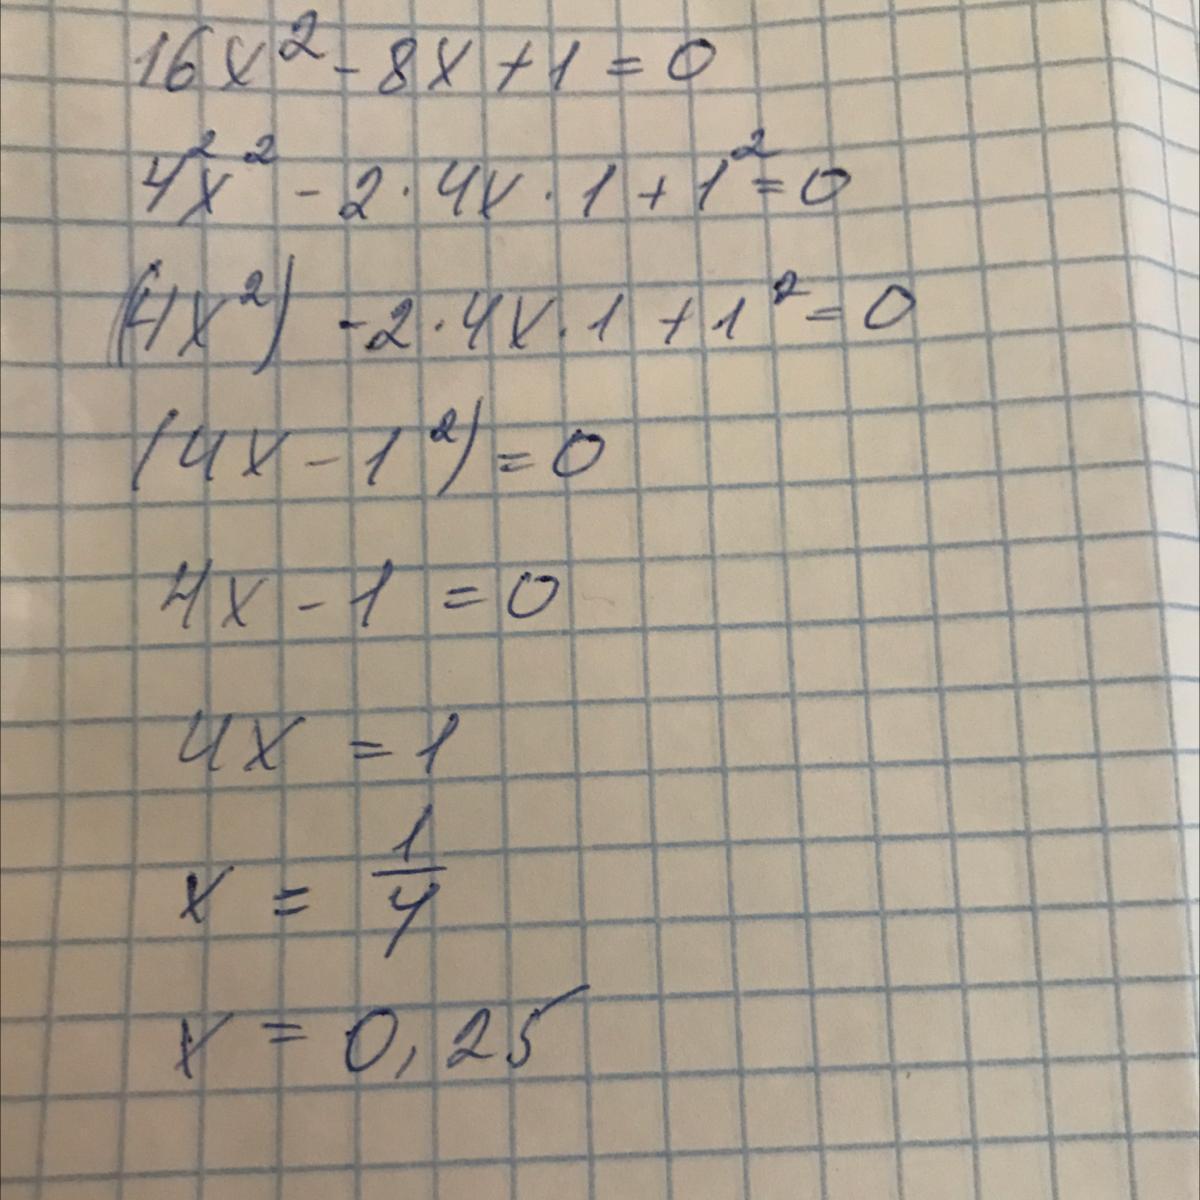 16x² - 8x + 1 = 0
4²x² - 2 · 4x · 1 + 1² = 0
(4x²) - 2 · 4x · 1 + 1² = 0
(4x - 1²) = 0
4x - 1 = 0
4x = 1
x = 1/4
x = 0,25